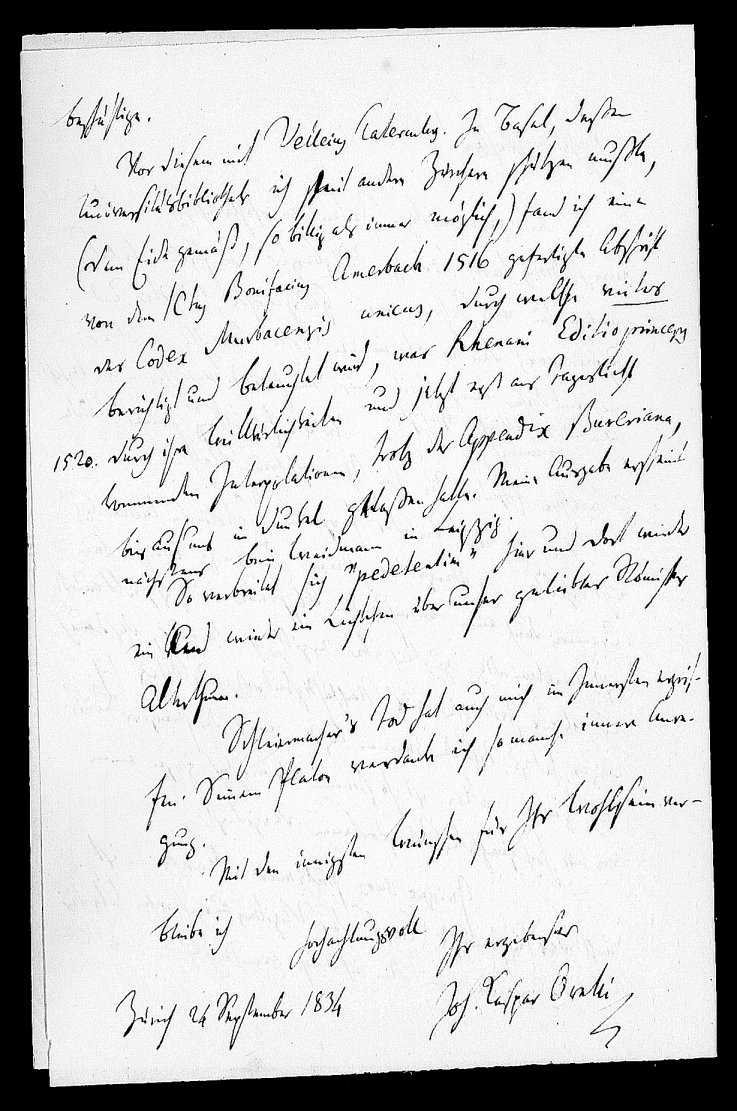 beschäftige.
Vor diesem mit Velleius Paterculus. In Basel, dessen
Universitätsbibliothek ich mit andern Zürchern schätzen mußte,
(dem Eide gemäß, so billig als immer möglich,) fand ich eine
von dem ICtus Bonifacius Amerbach 1516 gefertigte Abschrift
des Codex Murbacensis unicus, durch welche vieles
berichtigt und beleuchtet wird, was Rhenani Editio princeps
1520. durch ihre Willkürlichkeiten und jetzt erst ans Tageslicht
kommenden Interpolationen, trotz der Appendix Bureriana,
bis auf uns in Dunkel gelassen hatte. Meine Ausgabe erscheint
nächstens beim Weidmann in Leipzig.
So verbreitet sich "pedetentim" hier und dort wieder
ein und wieder ein Lichtchen über unser geliebtes Römisches
Alterthum.
Schleiermacher's Tod hat auch mich im Innersten ergrif-
fen. Seinem Platon verdanke ich so manche innere Anre-
gung.
Mit den innigsten Wünschen für Ihr Wohlsein ver-
bleibe ich hochachtungsvoll
Ihr ergebenster
Joh. Kaspar Orelli
Zürich 24 September 1834